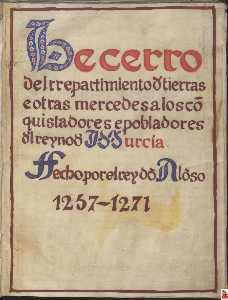 Becerro
del repartimiento đ tierras
e otras mercedes a los cō
quistadores e pobladores
đl reyno đ Murcia.
Fecho por el rey dō Alōso
1257-1271